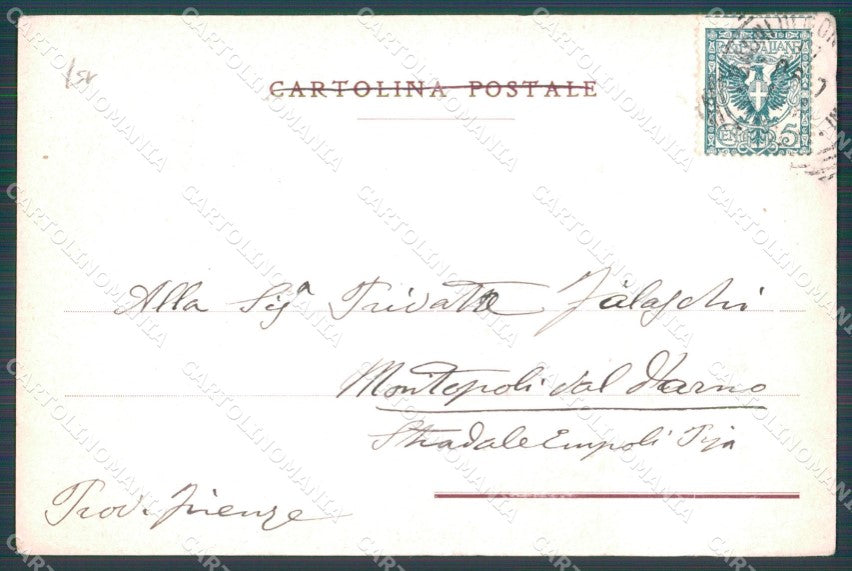 CARTOLINA POSTALE
POSTE ITALIANE
CENT. 5
Alla Sigª
Montopoli Val d'Arno
Stradale Empoli Pisa
Prov. Firenze
CARTOLINOMANIA